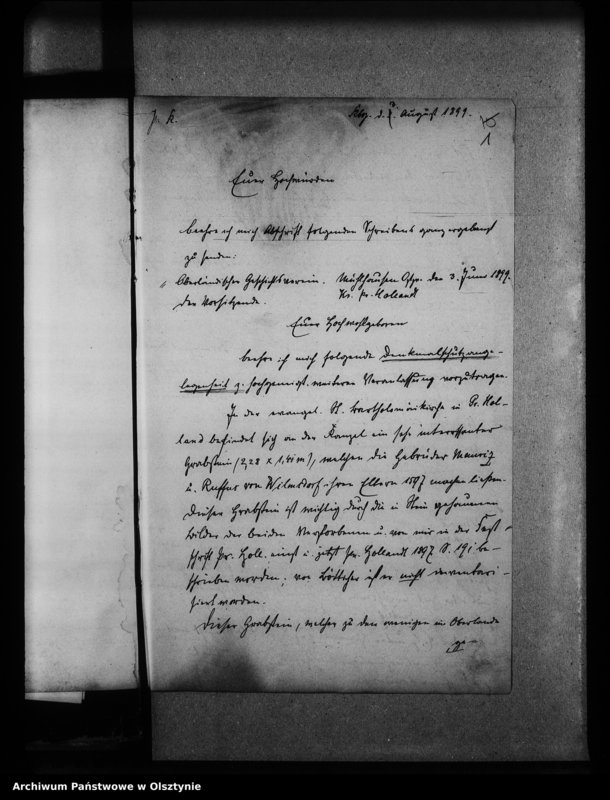 p. k.
Kbg. d. 7. August 1899.
1
Euer Hochwürden
beehre ich mich Abschrift folgenden Schreibens ganz ergebenst
zu senden:
„Oberländischer Geschichtsverein. Mühlhausen Ostpr. den 3. Juni 1899.
Der Vorsitzende. Kr. Pr. Holland
Euer Hochwohlgeboren
beehre ich mich folgende Denkmalschutzange-
legenheit z. hochgeneigt. weiteren Veranlassung vorzutragen.
In der evangel. St. Bartholomäikirche in Pr. Hol-
land befindet sich an der Kanzel ein sehr interessanter
Grabstein (2,28 x 1,41 m), welchen die Gebrüder Mauriz
u. Ruffus von Wilmsdorf ihren Eltern 1597 machen ließen.
Dieser Grabstein ist wichtig durch die in Stein gehauenen
Bilder der beiden Verstorbenen u. von mir in der Fest-
schrift Pr. Holl. einst u. jetzt Pr. Holland 1897 S. 19 be-
schrieben worden; von Bötticher ist er nicht inventari-
siert worden.
Dieser Grabstein, welcher zu den wenigen im Oberlande
ge-
Archiwum Państwowe w Olsztynie